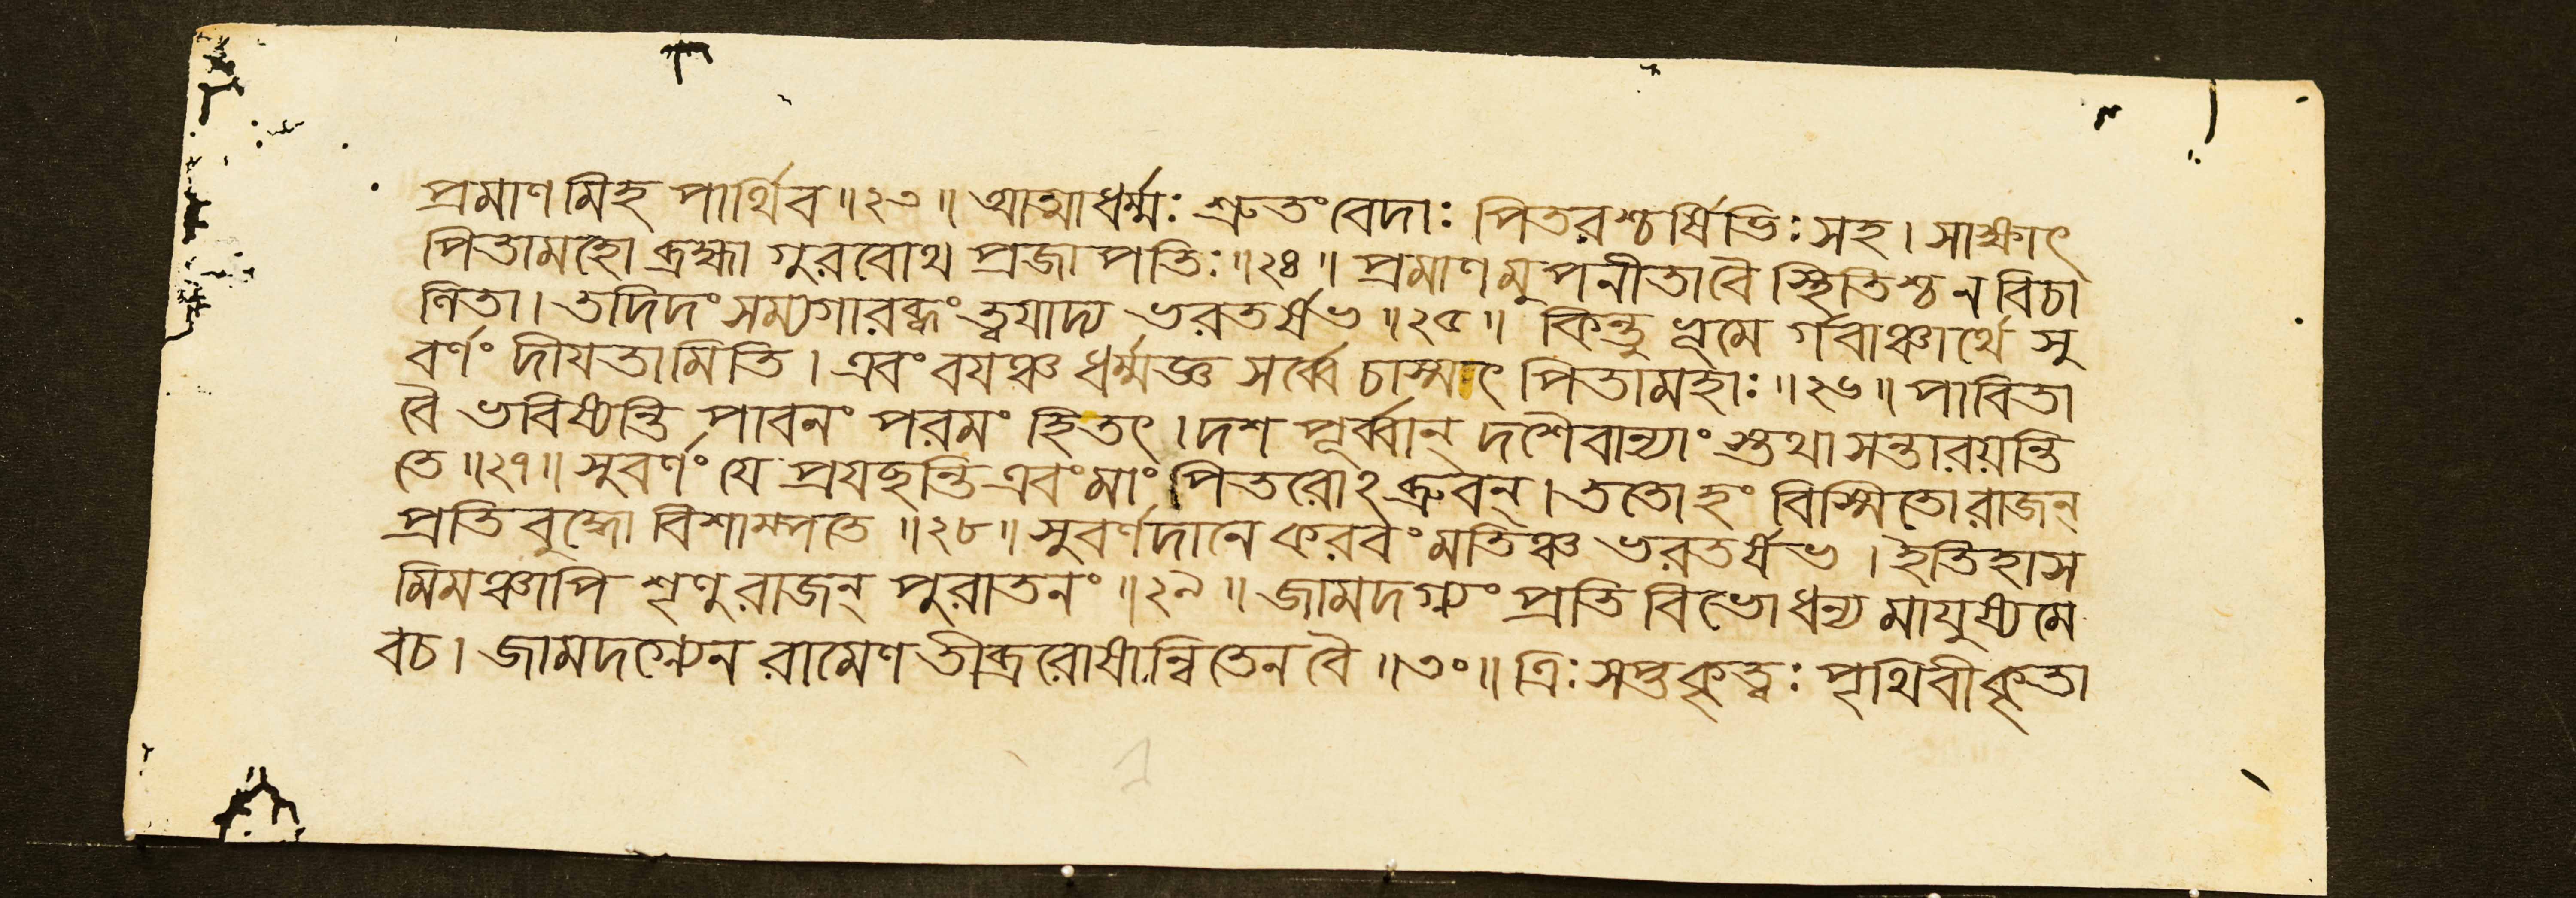 প্রমাণমিহ পার্থিব॥২৩॥ আত্মাধর্ম্মঃ শ্রুতং বেদাঃ পিতরশ্চর্ষিভিঃ সহ। সাক্ষাৎ
পিতামহো ব্রহ্মা গুরবোথ প্রজাপতিঃ॥২৪॥ প্রমাণমুপনীতাবৈ স্থিতিশ্চ ন বিচা
ণিতা। তদিদং সম্যগারব্ধং ত্বযাদ্য ভরতর্ষভ॥২৫॥ কিন্তু ভূমে র্গবাঞ্চার্থে সু
বর্ণং দীযতামিতি। এবং বযঞ্চ ধর্ম্মজ্ঞ সর্ব্বে চাস্মৎ পিতামহাঃ॥২৬॥ পাবিতা
বৈ ভবিষ্যন্তি পাবনং পরমং হিতৎ। দশ পূর্ব্বান্ দশৈবান্যাং স্তথা সন্তারয়ন্তি
তে॥২৭॥ সুবর্ণং যে প্রযছন্তি এবং মাং পিতরোঽব্রুবন্। ততোহং বিস্মিতো রাজন্
প্রতিবুদ্ধো বিশাম্পতে॥২৮॥ সুবর্ণদানে করবং মতিঞ্চ ভরতর্ষভ। ইতিহাস
মিমঞ্চাপি শৃণু রাজন্ পুরাতনং॥২৯॥ জামদগ্ন্যং প্রতি বিভো ধন্য মাযুষ্যমে
বচ। জামদগ্ন্যেন রামেণ তীব্ররোষান্বিতেন বৈ॥৩০॥ ত্রিঃ সপ্তকৃত্বঃ পৃথিবী কৃতা